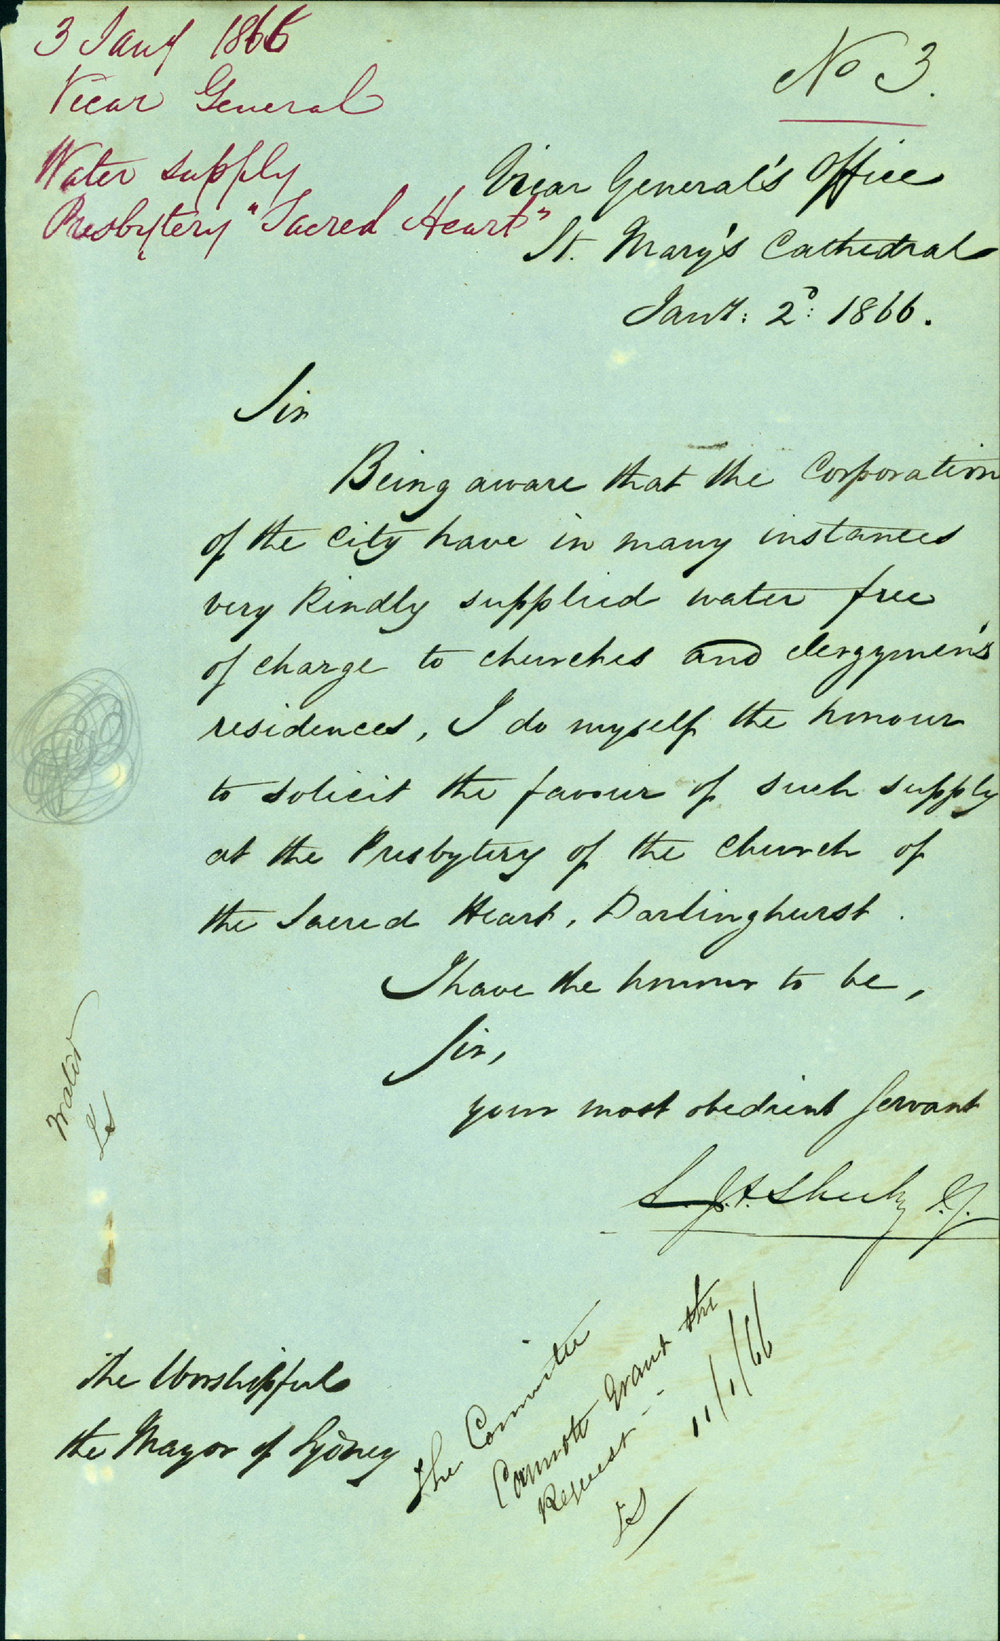 3 Jany 1866
Vicar General
Water supply
Presbytery "Sacred Heart"
No 3.
Vicar General's Office
St. Mary's Cathedral
Jany: 2d: 1866.
Sir
Being aware that the Corporation
of the City have in many instances
very kindly supplied water free
of charge to churches and clergymen's
residences, I do myself the honour
to solicit the favour of such supply
at the Presbytery of the Church of
the Sacred Heart, Darlinghurst.
I have the honour to be,
Sir,
your most obedient servant
S. J. A. Sheehy V.G.
Water
The Worshipful
the Mayor of Sydney
The Committee
Cannot Grant the
Request
11/1/66